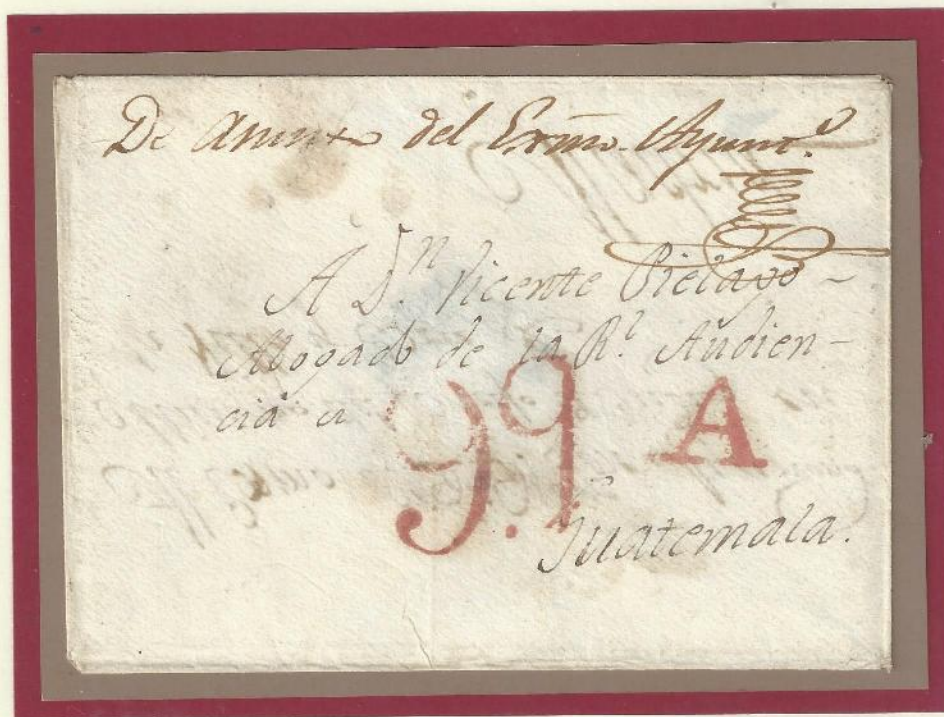 De Asunto del Exmo. Ayumt.º
A D.n Vicente Pielago
Abogado de la R.l Audien-
cia a
99 A
Guatemala.